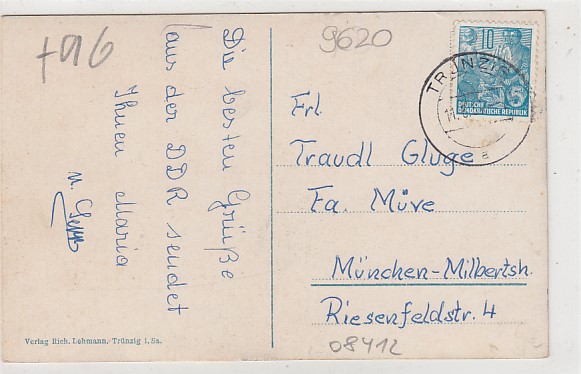 +96
9620
Die besten Grüße
aus der DDR sendet
Ihnen Maria
10
5
DEUTSCHE
DEMOKRATISCHE REPUBLIK
TRÜNZIG
a
Frl
Traudl Gluge
Fa. Müve
München-Milbertsh.
Riesenfeldstr. 4
08412
Verlag Rich. Lehmann, Trünzig i. Sa.